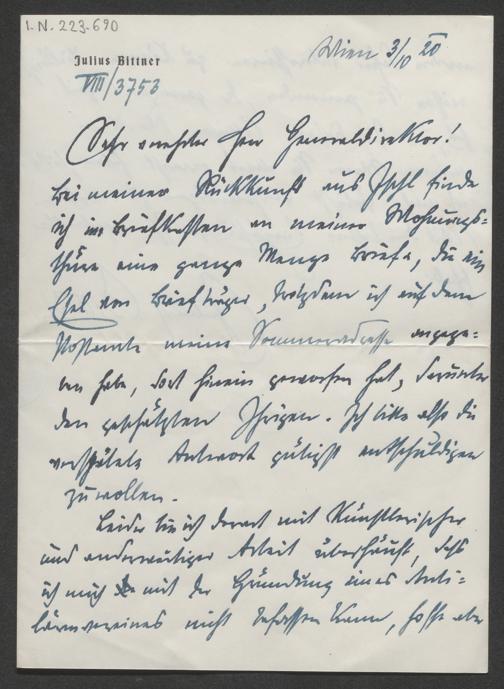 I. N. 223.690
Julius Bittner
VIII/3753
Wien 3/10 20
Sehr verehrter Herr Generaldirektor!
Bei meiner Rückkunft aus Ischl finde
ich im Briefkasten an meiner Wohnungs-
thüre eine ganze Menge Briefe, die ein
Esel von Briefträger, trotzdem ich auf dem
Postamte meine Sommeradresse angege-
ben habe, dort hinein geworfen hat, darunter
den geschätzten Ihrigen. Ich bitte also die
verspätete Antwort gütigst entschuldigen
zu wollen.
Leider bin ich derart mit künstlerischer
und anderweitiger Arbeit überhäuft, daß
ich mich mit der Gründung eines Anti-
lärmvereines nicht befassen kann, hoffe aber